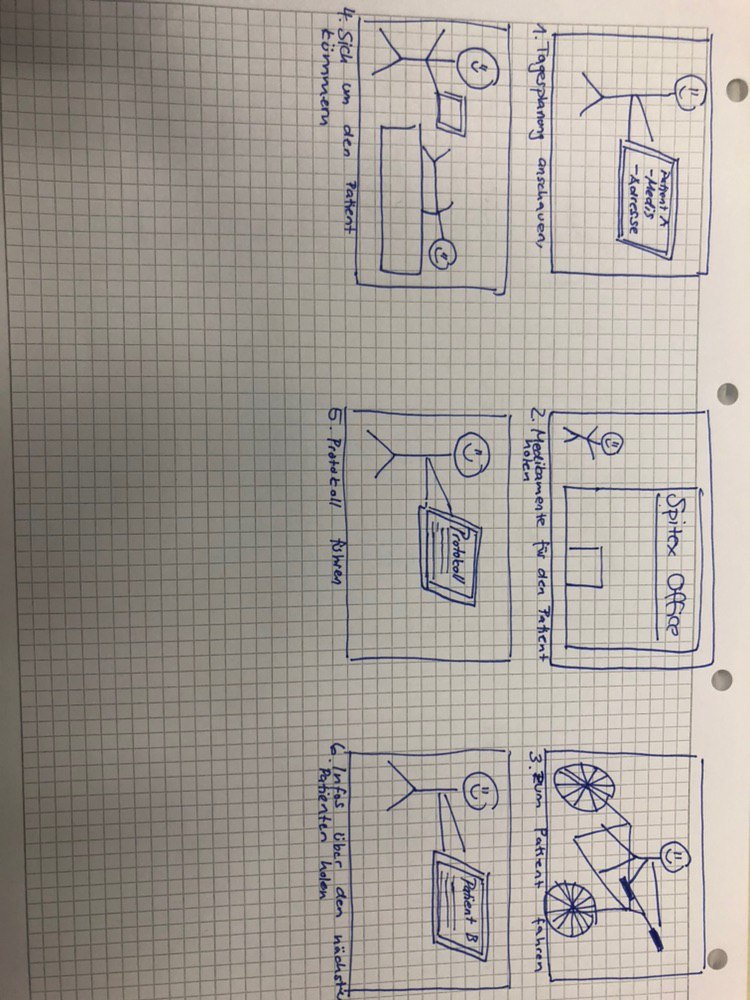 Patient A
-Medis
-Adresse
1. Tagesplanung anschauen,
Spitex Office
2. Medikamente für den Patient
holen
3. Zum Patient fahren
4. Sich um den Patient
kümmern
Protokoll
5. Protokoll führen
Patient B
6. Infos über den nächste
Patienten holen